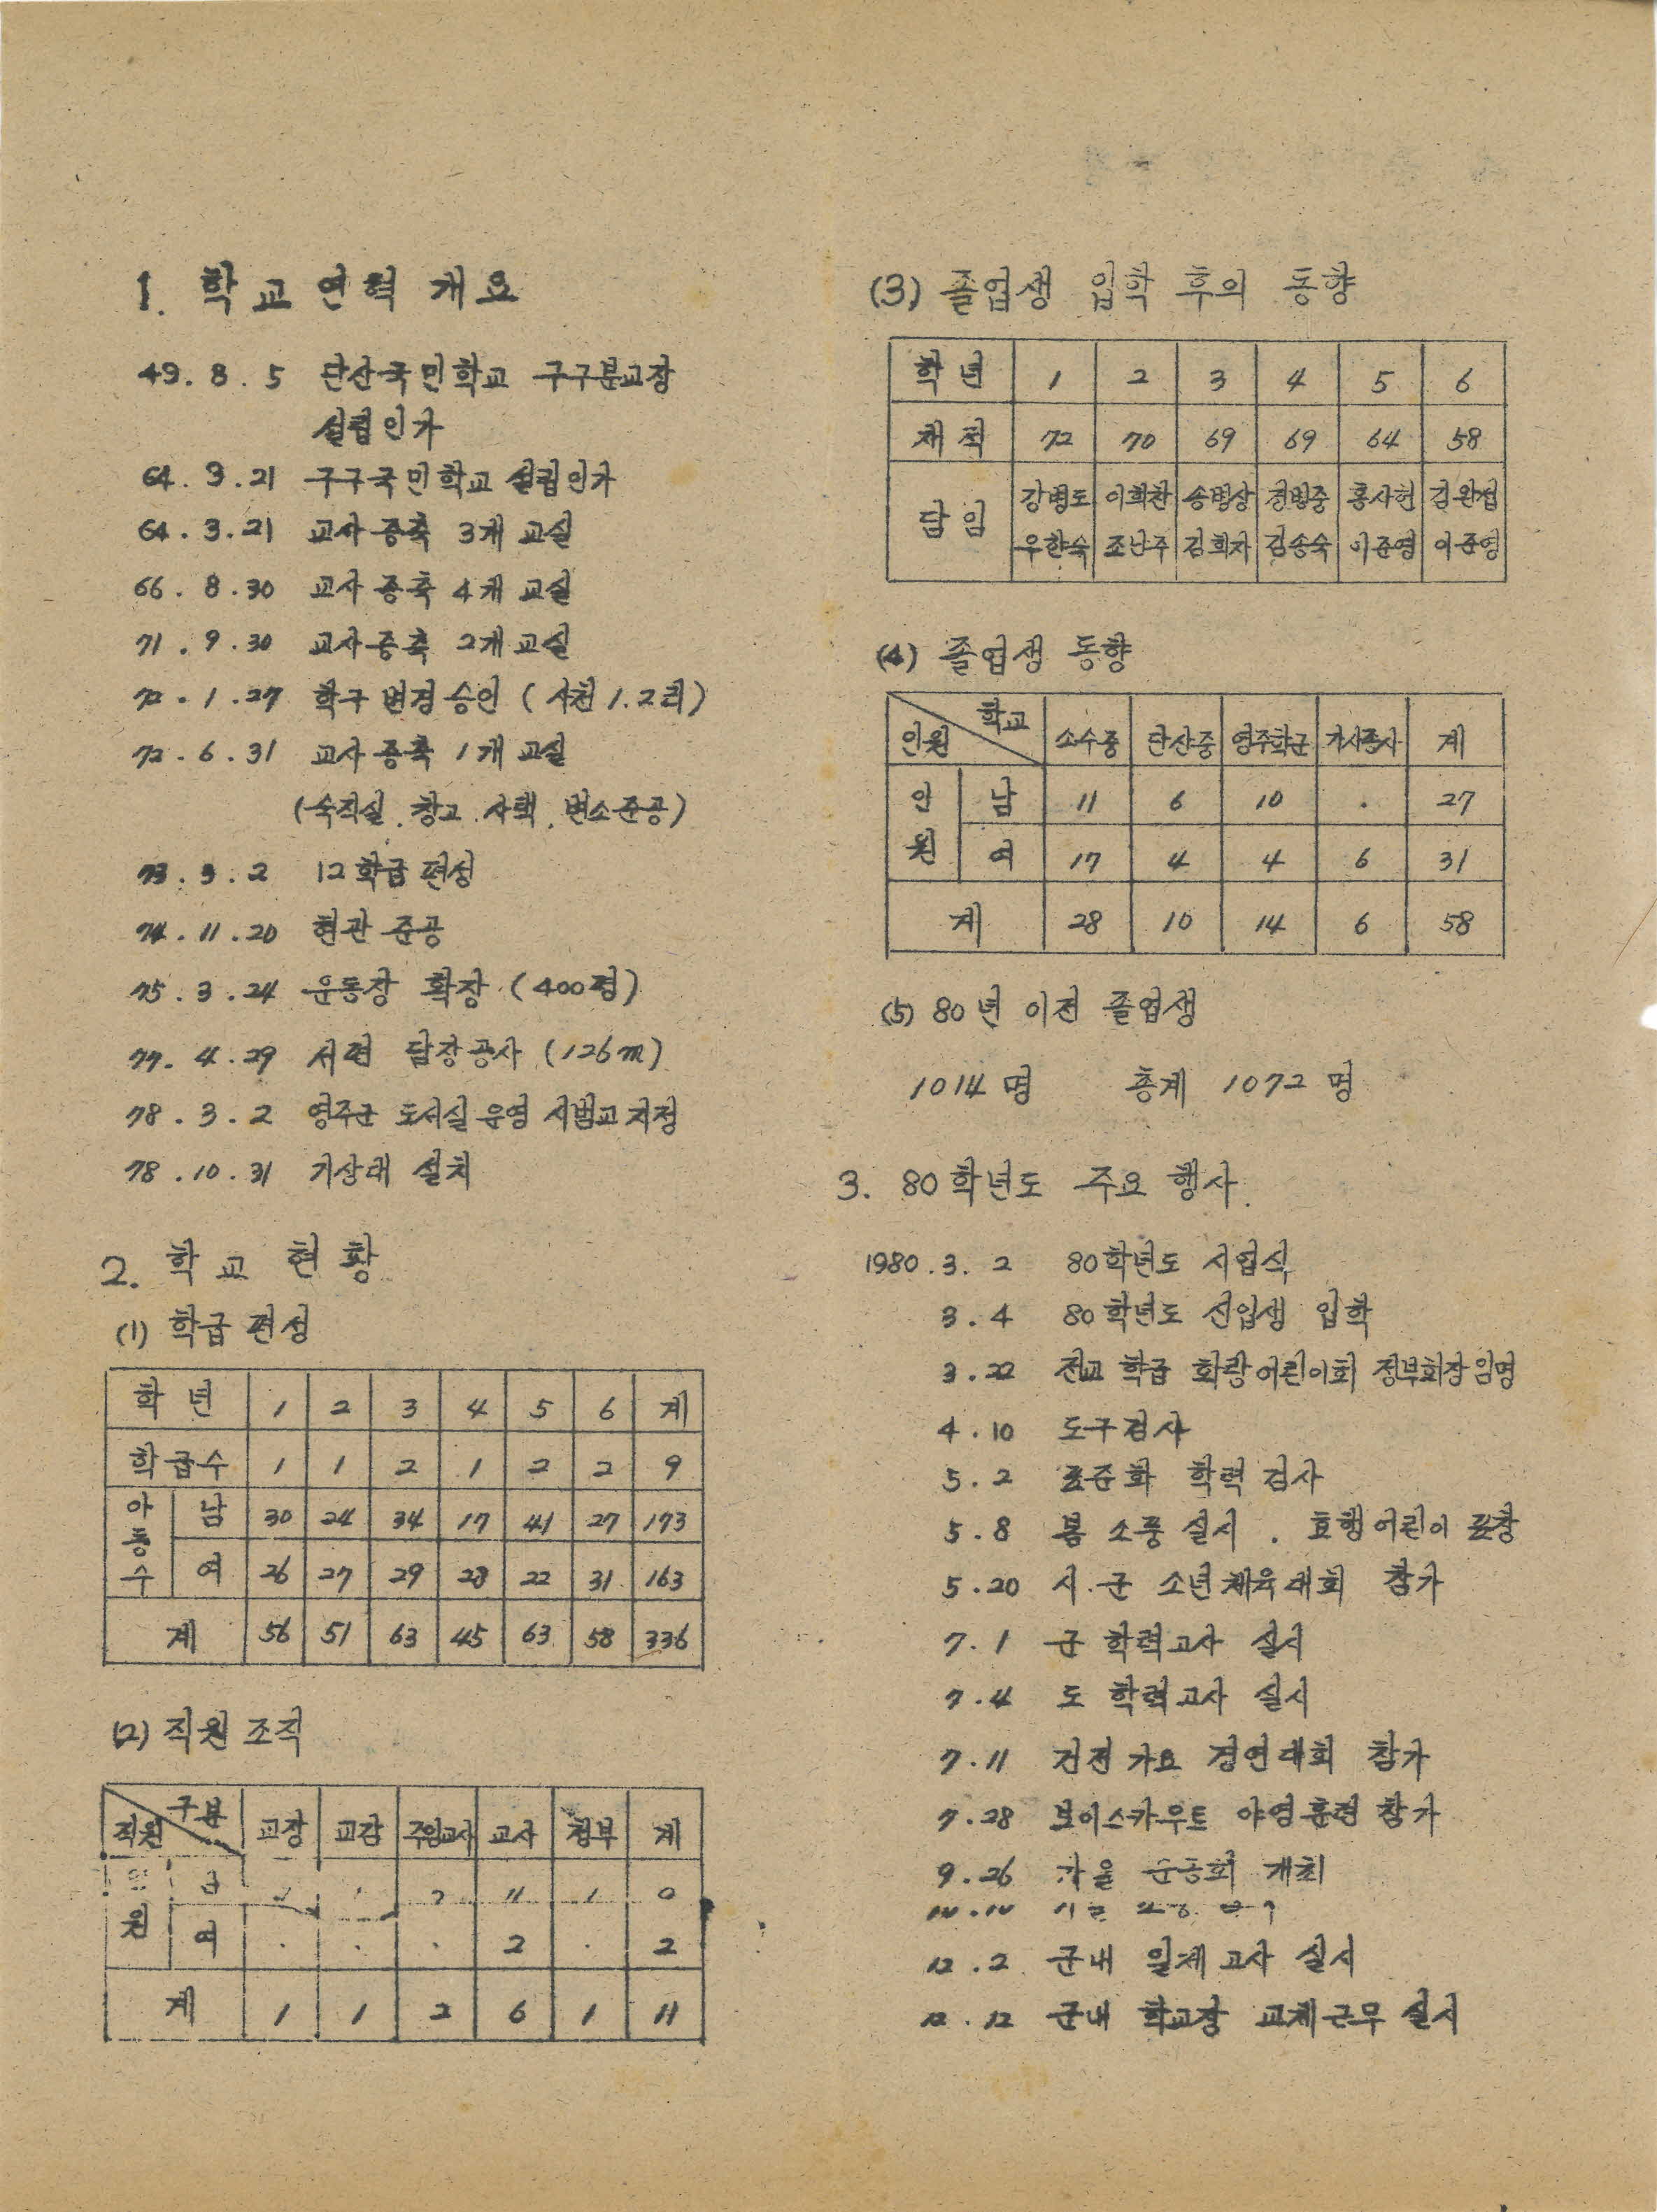 1. 학교연혁 개요
49. 8. 5 단산국민학교 구구분교장
설립인가
64. 3. 21 구구국민학교 설립인가
64. 3. 21 교사 증축 3개 교실
66. 8. 30 교사 증축 4개 교실
71. 9. 30 교사 증축 2개 교실
72. 1. 27 학구 변경 승인 (사천 1.2리)
72. 6. 31 교사 증축 1개 교실
(숙직실. 창고. 사택. 변소준공)
73. 3. 2 12학급 편성
74. 11. 20 현관 준공
75. 3. 24 운동장 확장 (400평)
77. 4. 29 서편 담장공사 (126m)
78. 3. 2 영주군 도서실 운영 시범교 지정
78. 10. 31 기상대 설치
2. 학교 현황
(1) 학급편성
학년 1 2 3 4 5 6 계
학급수 1 1 2 1 2 2 9
아동수 남 30 24 34 17 41 27 173
여 26 27 29 28 22 31 163
계 56 51 63 45 63 58 336
(2) 직원 조직
구분 직원 교장 교감 주임교사 교사 청부 계
원 여 . . . 2 . 2
계 1 1 2 6 1 11
(3) 졸업생 입학 후의 동향
학년 1 2 3 4 5 6
재적 72 70 69 69 64 58
담임 강병도 이희찬 송병상 정병중 홍사헌 김완섭
우한숙 조난주 김희자 김송숙 이준영 이준영
(4) 졸업생 동향
학교 인원 소수중 단산중 영주학군 가사종사 계
인원 남 11 6 10 . 27
여 17 4 4 6 31
계 28 10 14 6 58
(5) 80년 이전 졸업생
1014명 총계 1072명
3. 80학년도 주요 행사
1980. 3. 2 80학년도 시업식
3. 4 80학년도 신입생 입학
3. 22 전교 학급 화랑어린이회 정부회장 임명
4. 10 도구검사
5. 2 표준화 학력 검사
5. 8 봄 소풍 실시. 효행어린이 표창
5. 20 시.군 소년체육대회 참가
7. 1 군 학력고사 실시
7. 4 도 학력고사 실시
7. 11 건전가요 경연대회 참가
7. 28 보이스카우트 야영훈련 참가
9. 26 가을 운동회 개최
12. 2 군내 일제고사 실시
12. 12 군내 학교장 교체근무 실시